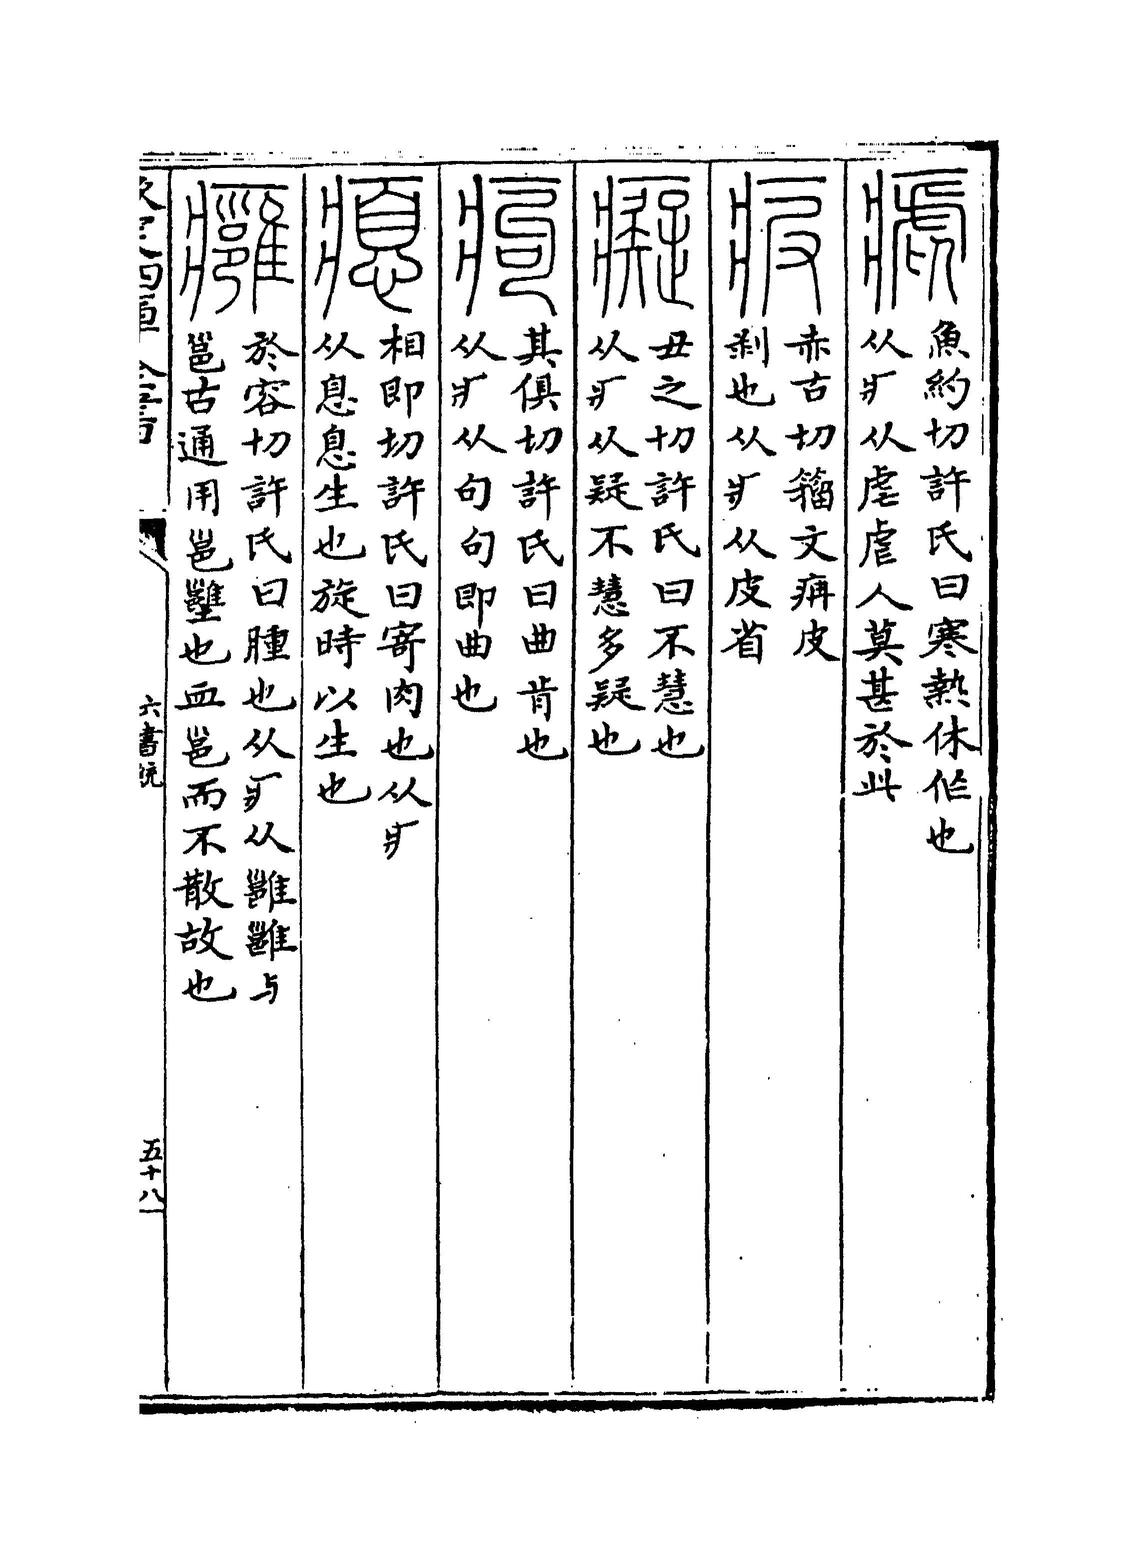 瘧
魚約切許氏曰寒熱休作也
从疒从虐虐人莫甚於此
疲
赤古切籀文痹皮
剥也从疒从皮省
癡
丑之切許氏曰不慧也
从疒从疑不慧多疑也
痀
其俱切許氏曰曲脊也
从疒从句句即曲也
瘜
相即切許氏曰寄肉也从疒
从息息生也旋時以生也
癰
於容切許氏曰腫也从疒从雝雝与
邕古通用邕壅也血邕而不散故也
欽定四庫全書
六書統
五十八